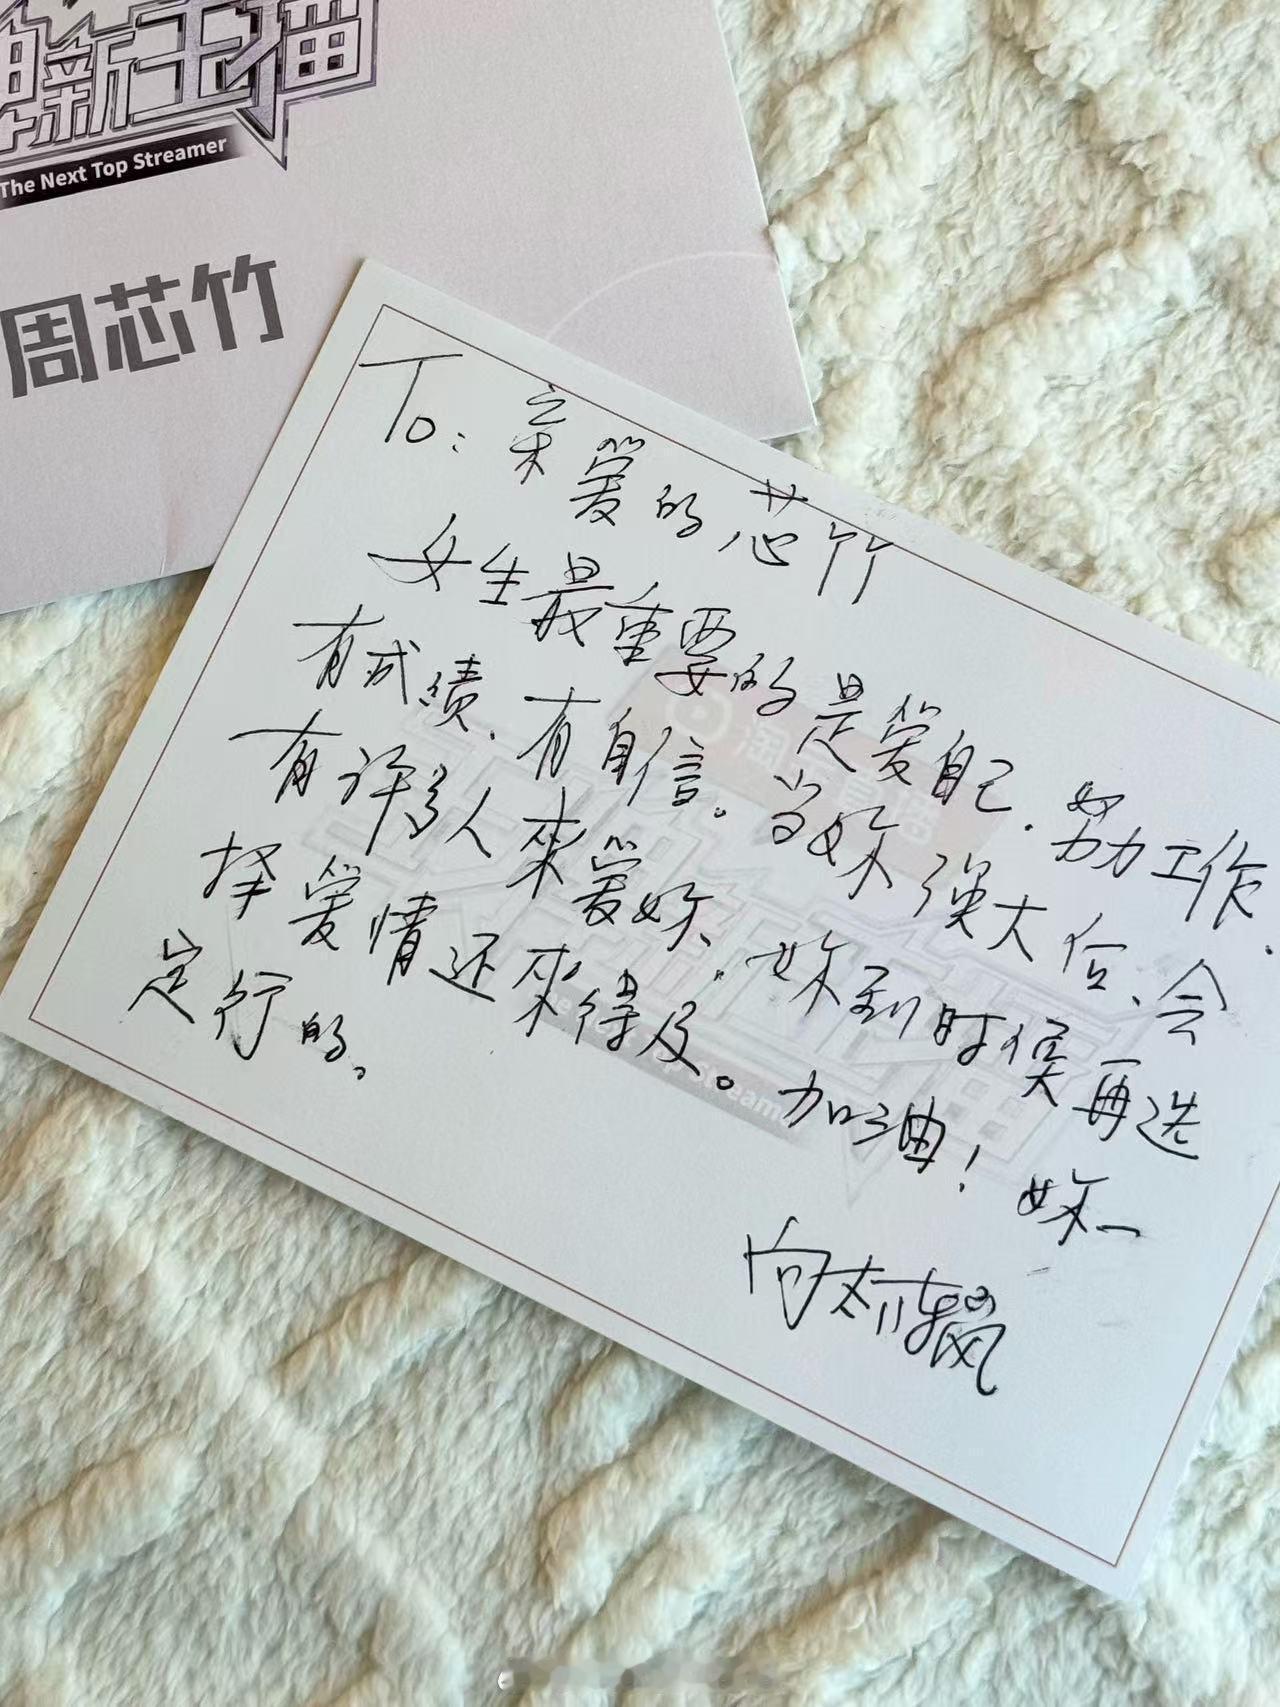 新主播
The Next Top Streamer
周芯竹
To: 亲爱的芯竹
女生最重要的是爱自己. 努力工作.
有成绩. 有自信。当妳强大后、会
有许多人來爱妳. 妳到时候再选
择爱情还來得及。加油! 妳一
定行的。
向太